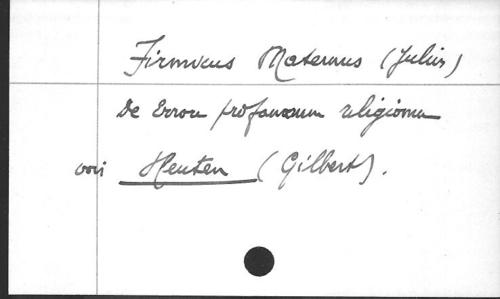 Firmicus Maternus (Julius)
De Errore profanarum religionum
voir Heuten (Gilbert).